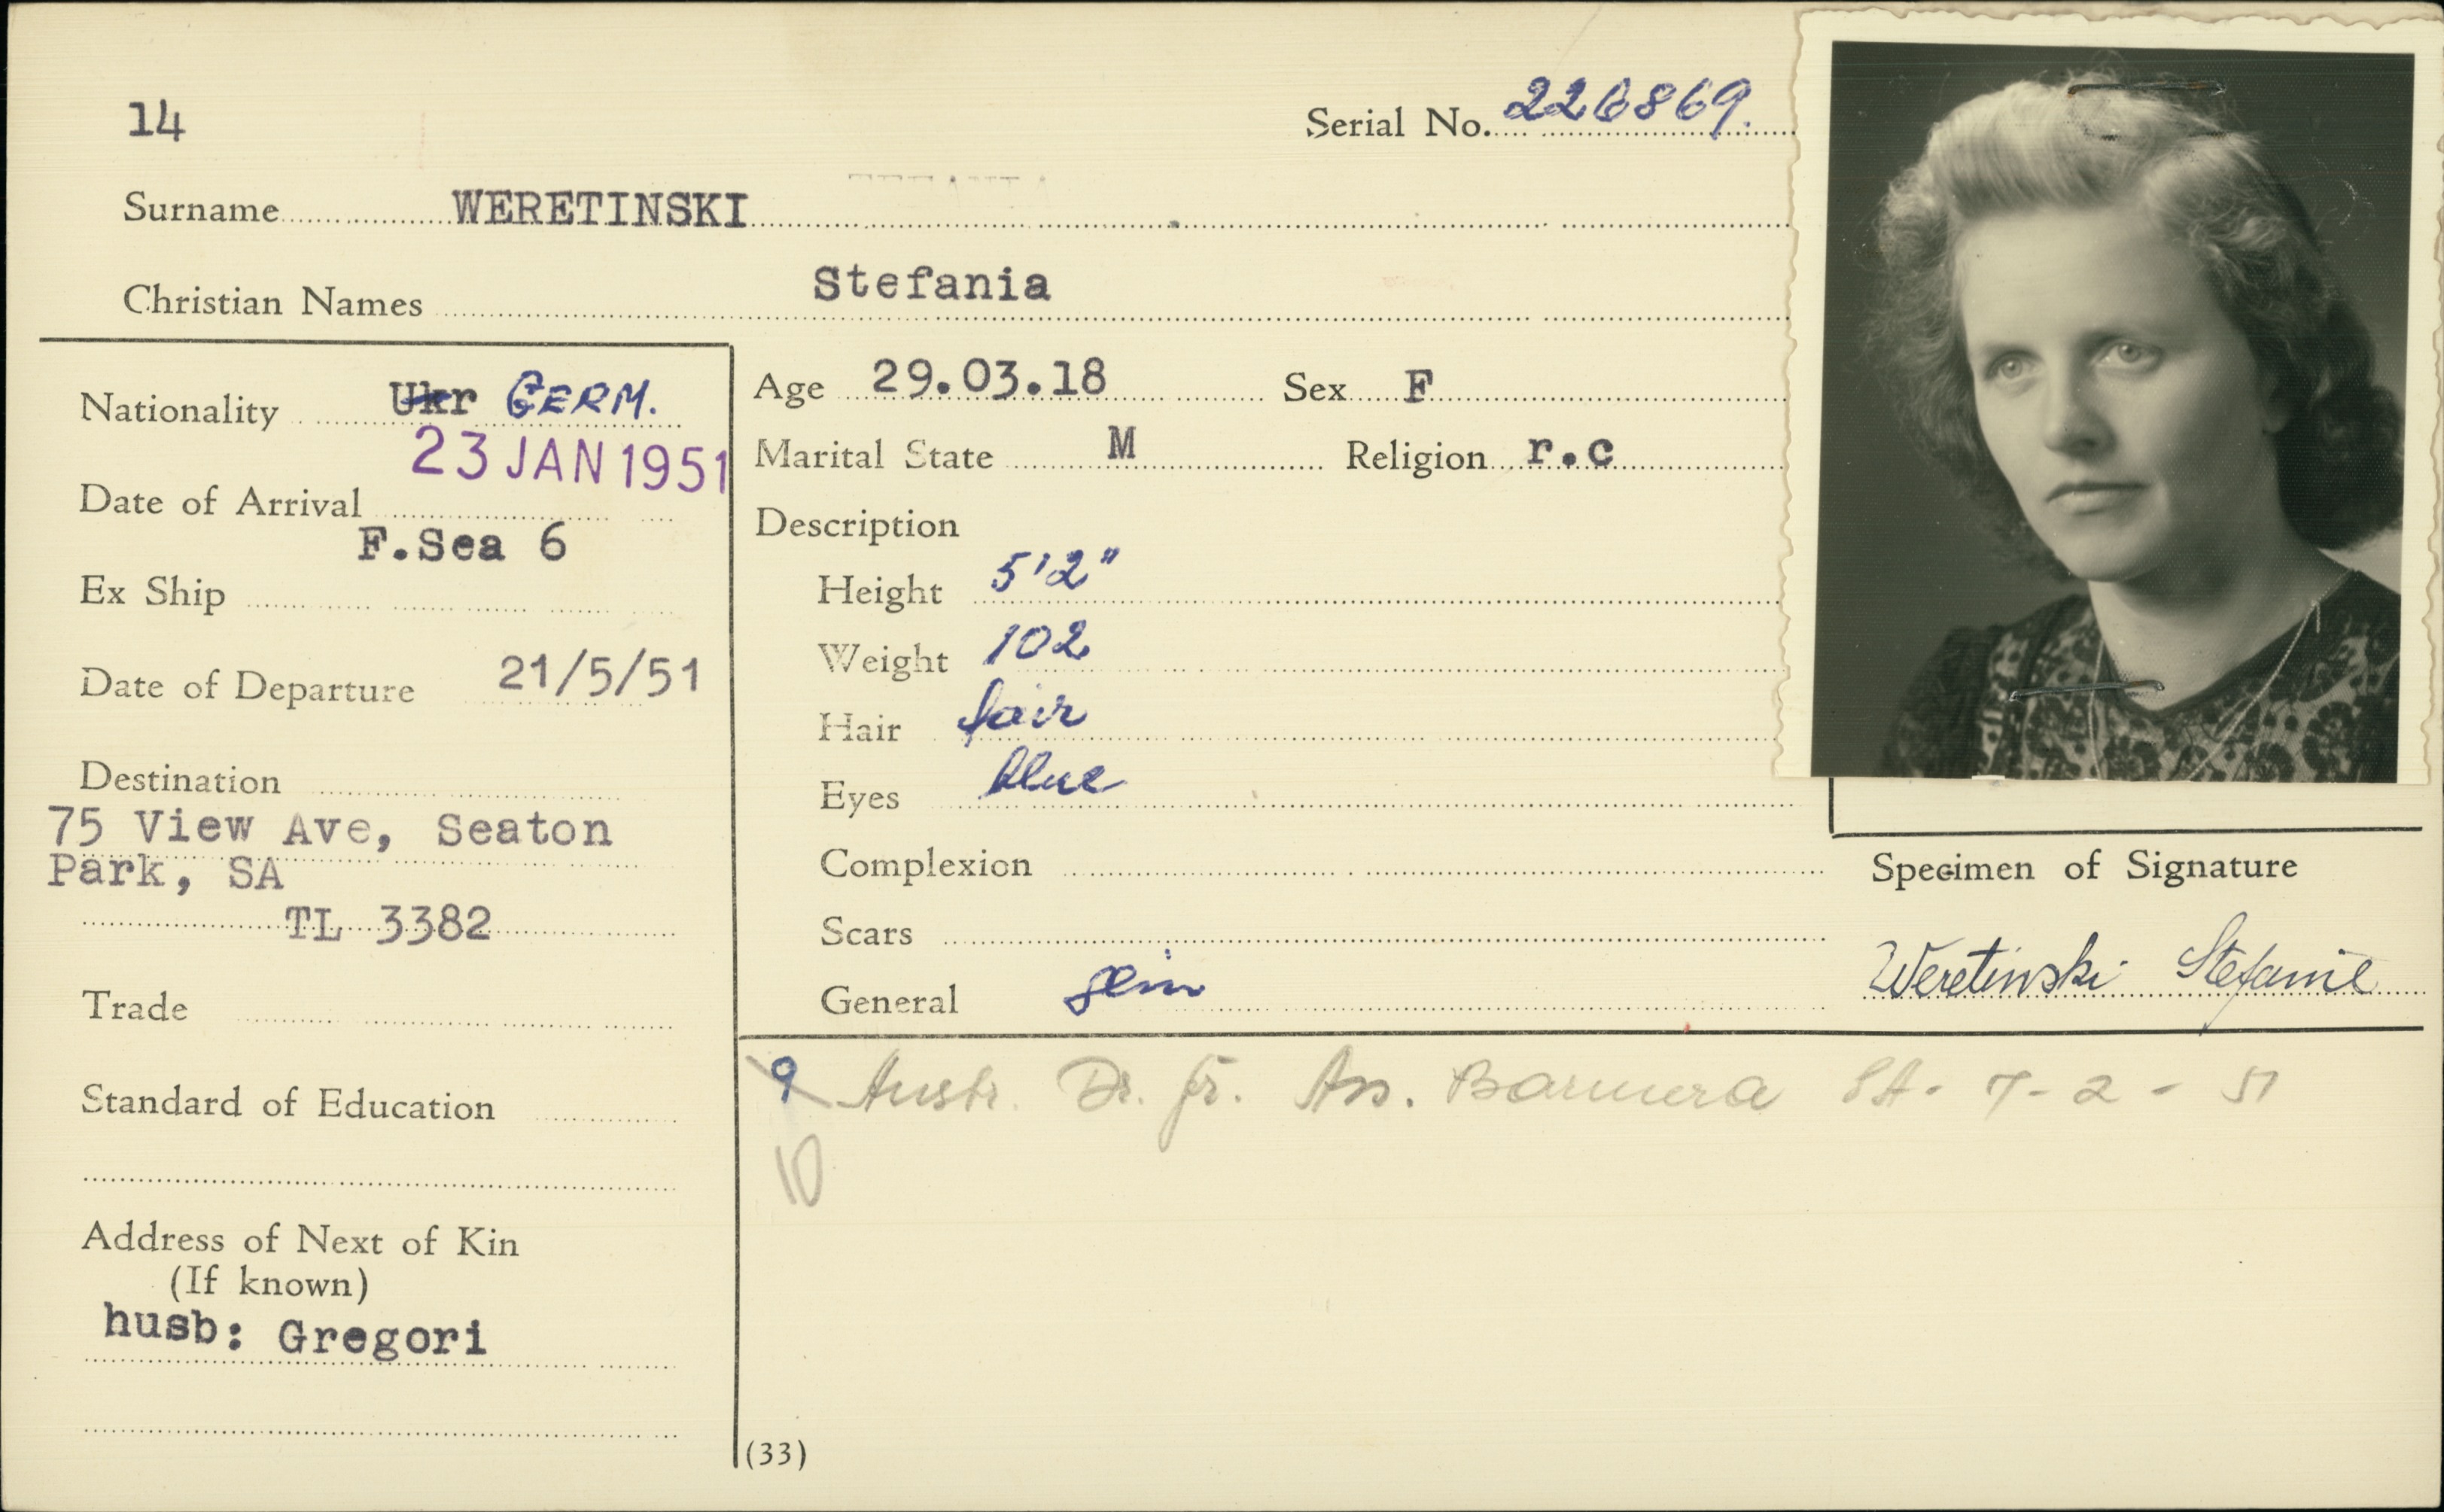 14
Serial No. 226869.
Surname WERETINSKI
Christian Names Stefania
Nationality Ukr GERM.
Date of Arrival 23 JAN 1951
Ex Ship F.Sea 6
Date of Departure 21/5/51
Destination
75 View Ave, Seaton
Park, SA
TL 3382
Trade
Standard of Education
Address of Next of Kin
(If known)
husb: Gregori
Age 29.03.18 Sex F
Marital State M Religion r.c
Description
Height 5'2"
Weight 102
Hair fair
Eyes blue
Complexion
Scars
General slim
Specimen of Signature
Weretinski Stefanie
9 Austr. Dr. fr. Barmera SA. 7-2-51
10
(33)